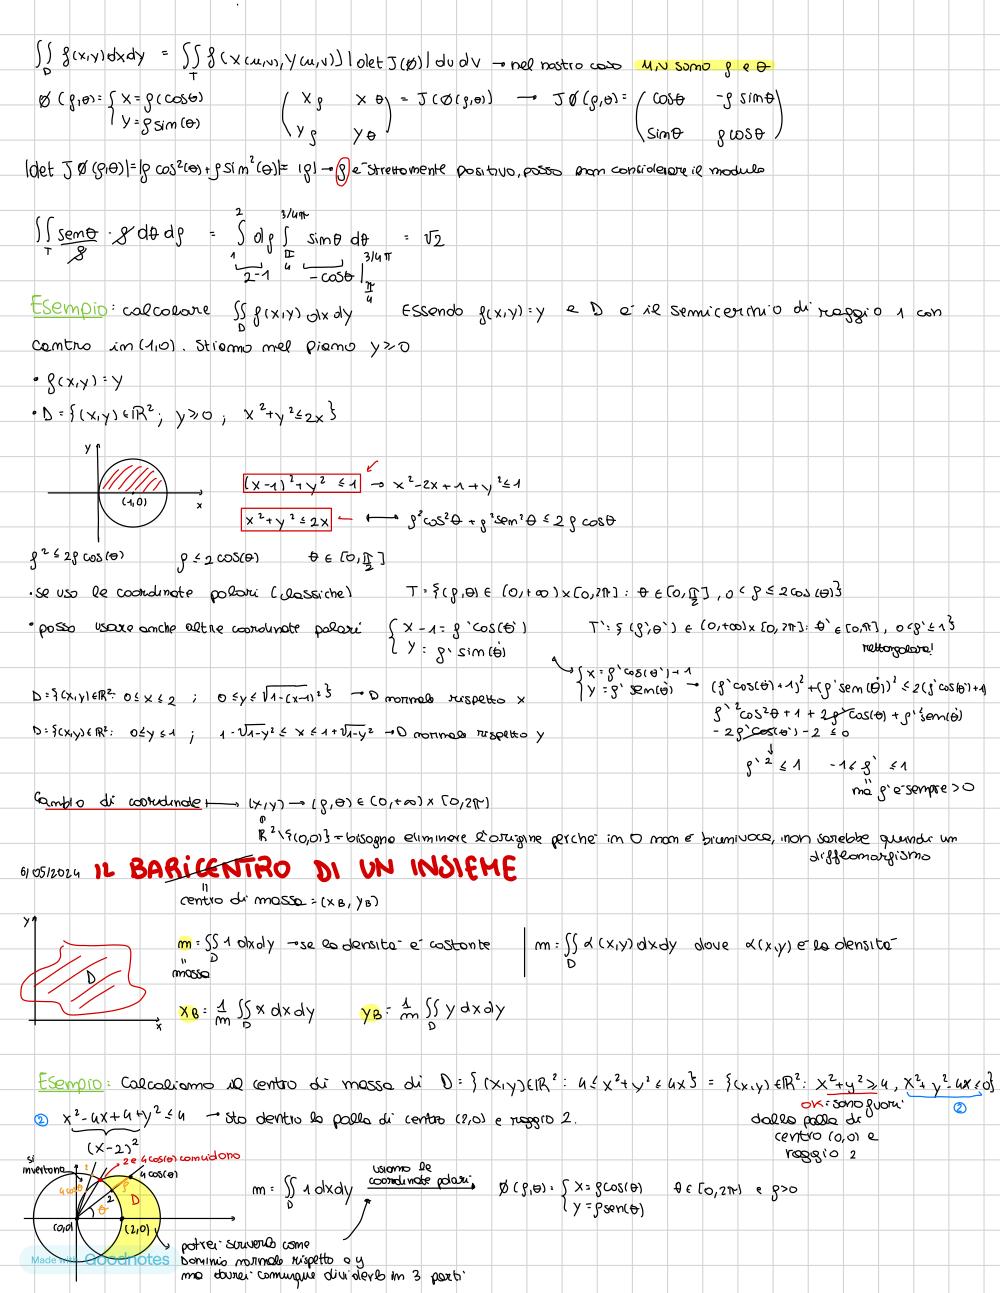 ∬_D f(x,y)dxdy = ∬_T f(x(u,v),y(u,v))|det J(Ø)|dudv → nel nostro caso u,v sono ρ e θ
Ø(ρ,θ)= { x=ρ(cosθ) y=ρsin(θ) ( xρ xθ yρ yθ ) = J(Ø(ρ,θ)) → JØ(ρ,θ)= ( cosθ -ρ sinθ sinθ ρcosθ )
|det JØ(ρ,θ)|=|ρ cos²(θ)+ρ sin²(θ)|= |ρ| → ρ è strettamente positivo, posso non considerare il modulo
∬_T senθ/ρ · ρ dθ dρ = ∫_1^2 dρ ∫_{π/4}^{3/4π} sinθ dθ = √2
2-1 -cosθ |_{π/4}^{3/4π}
Esempio: calcolare ∬_D f(x,y) dxdy Essendo f(x,y)=y e D è il semicerchio di raggio 1 con
centro in (1,0). Stiamo nel piano y≥0
• f(x,y)=y
• D={(x,y)∈ℝ²; y≥0; x²+y²≤2x}
y
(1,0)
x
(x-1)²+y² ≤1 → x²-2x+1+y²≤1
x²+y²≤2x ← ⟼ ρ²cos²θ+ρ²sen²θ≤2ρ cosθ
ρ²≤2ρcos(θ) ρ≤2cos(θ) θ∈[0,π/2]
• se uso le coordinate polari (classiche) T={(ρ,θ)∈(0,+∞)×[0,2π]: θ∈[0,π/2], 0<ρ≤2cos(θ)}
• posso usare anche altre coordinate polari { x-1=ρ'cos(θ') y=ρ' sin(θ') T'={(ρ',θ')∈(0,+∞)×[0,2π]: θ'∈[0,π], 0<ρ'≤1}
rettangolare!
{ x=ρ'cos(θ')+1 y=ρ' sen(θ') → (ρ'cos(θ')+1)²+(ρ'sen(θ'))²≤2(ρ'cos(θ')+1)
D={(x,y)∈ℝ²: 0≤x≤2; 0≤y≤√1-(x-1)²} → D normale rispetto x
ρ'²cos²θ+1+2ρ'cos(θ)+ρ'sen(θ)
-2ρ'cos(θ')-2≤0
D={(x,y)∈ℝ²: 0≤y≤1; 1-√1-y²≤x≤1+√1-y² → D normale rispetto y
ρ'²≤1 -1≤ρ'≤1
ma ρ' è sempre >0
Cambio di coordinate ⟼ (x,y)→(ρ,θ)∈(0,+∞)×[0,2π)
ℝ²\{(0,0)} = bisogno eliminare l'origine perché in 0 non è biunivoca, non sarebbe quindi un
diffeomorfismo
6/05/2024 IL BARICENTRO DI UN INSIEME
centro di massa =(xB, yB)
y
D
x
m=∬_D 1 dxdy → se la densità è costante m=∬_D α(x,y)dxdy dove α(x,y) è la densità
massa
xB= 1/m ∬_D x dxdy yB= 1/m ∬_D y dxdy
Esempio: Calcoliamo il centro di massa di D={(x,y)∈ℝ²: 4≤x²+y²≤4x} = {(x,y)∈ℝ²: x²+y²≥4, x²+y²-4x≤0}
OK: sono fuori
dalla palla di
centro (0,0) e
raggio 2
②
② x²-4x+4+y²≤4 → sto dentro la palla di centro (2,0) e raggio 2.
(x-2)²
si invertono
2 e 4cos(θ) coincidono
4cos(θ)
4cosθ
2
2
ρ
D
θ
(0,0)
(2,0)
m=∬_D 1 dxdy usiamo le coordinate polari Ø(ρ,θ)= { x=ρcos(θ) y=ρsen(θ) θ∈[0,2π) e ρ>0
potrei scriverlo come
Dominio normale rispetto a y
ma dovrei comunque dividerlo in 3 parti
Made with Goodnotes